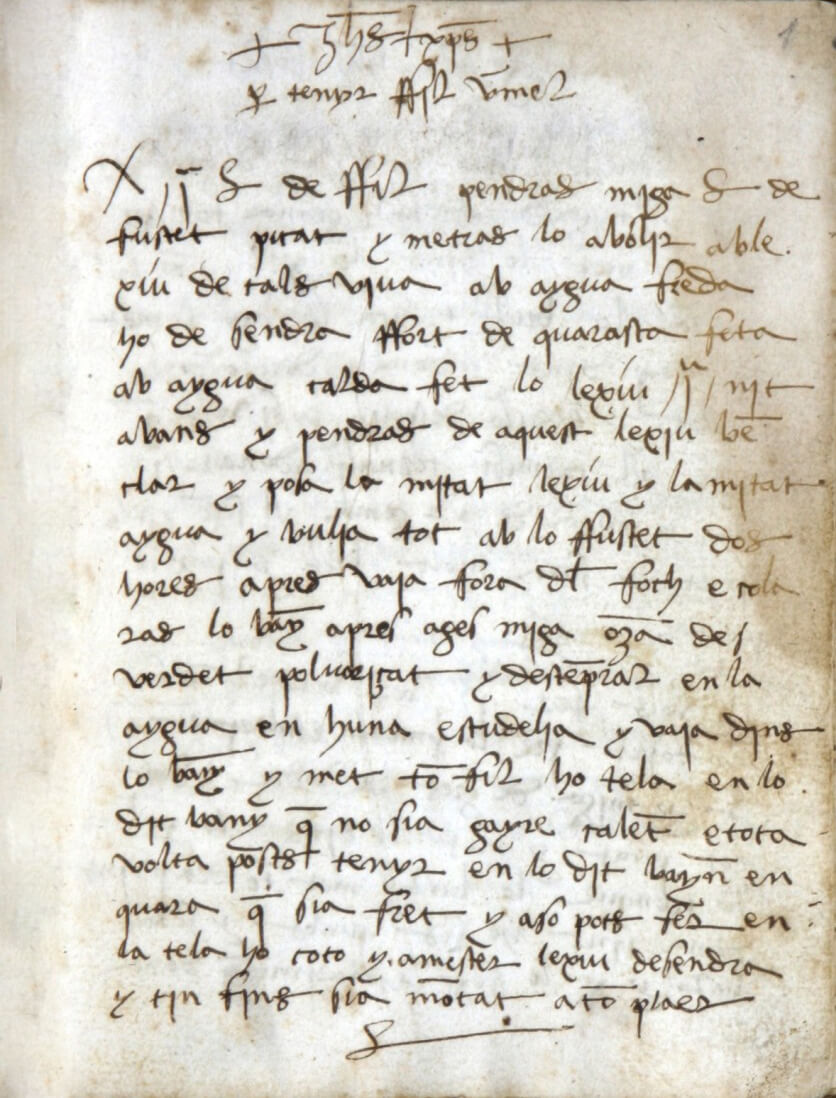 + Jhs + xps +
1
p tenyr ffil vmel
X jª ll de ffil pendras miga ll de
fustet picat y metras lo abolir able
xiu de cals viva ab aygua freda
ho de sendra ffort de quarasca feta
ab aygua calda fet lo lexiu jª nit
abans y pendras de aquest lexiu bē
clar y posa la mitat lexiu y la mitat
aygua y bulia tot ab lo ffustet dos
hores apres vaja fora dl foch e cola
ras lo bāy apres ages miga oza de
verdet polvorizat y destēprar en la
aygua en huna escudella y vaja dins
lo bāny y met tō fil ho tela en lo
dit bany q̄ no sia gayre calēt e tota
volta pots tenyr en lo dit bayn̄ en
quara q̄ sia fret y aso pots fer en
la tela ho coto y a mester lexiu de sendra
y tin fins sia mōtat a tō plaer